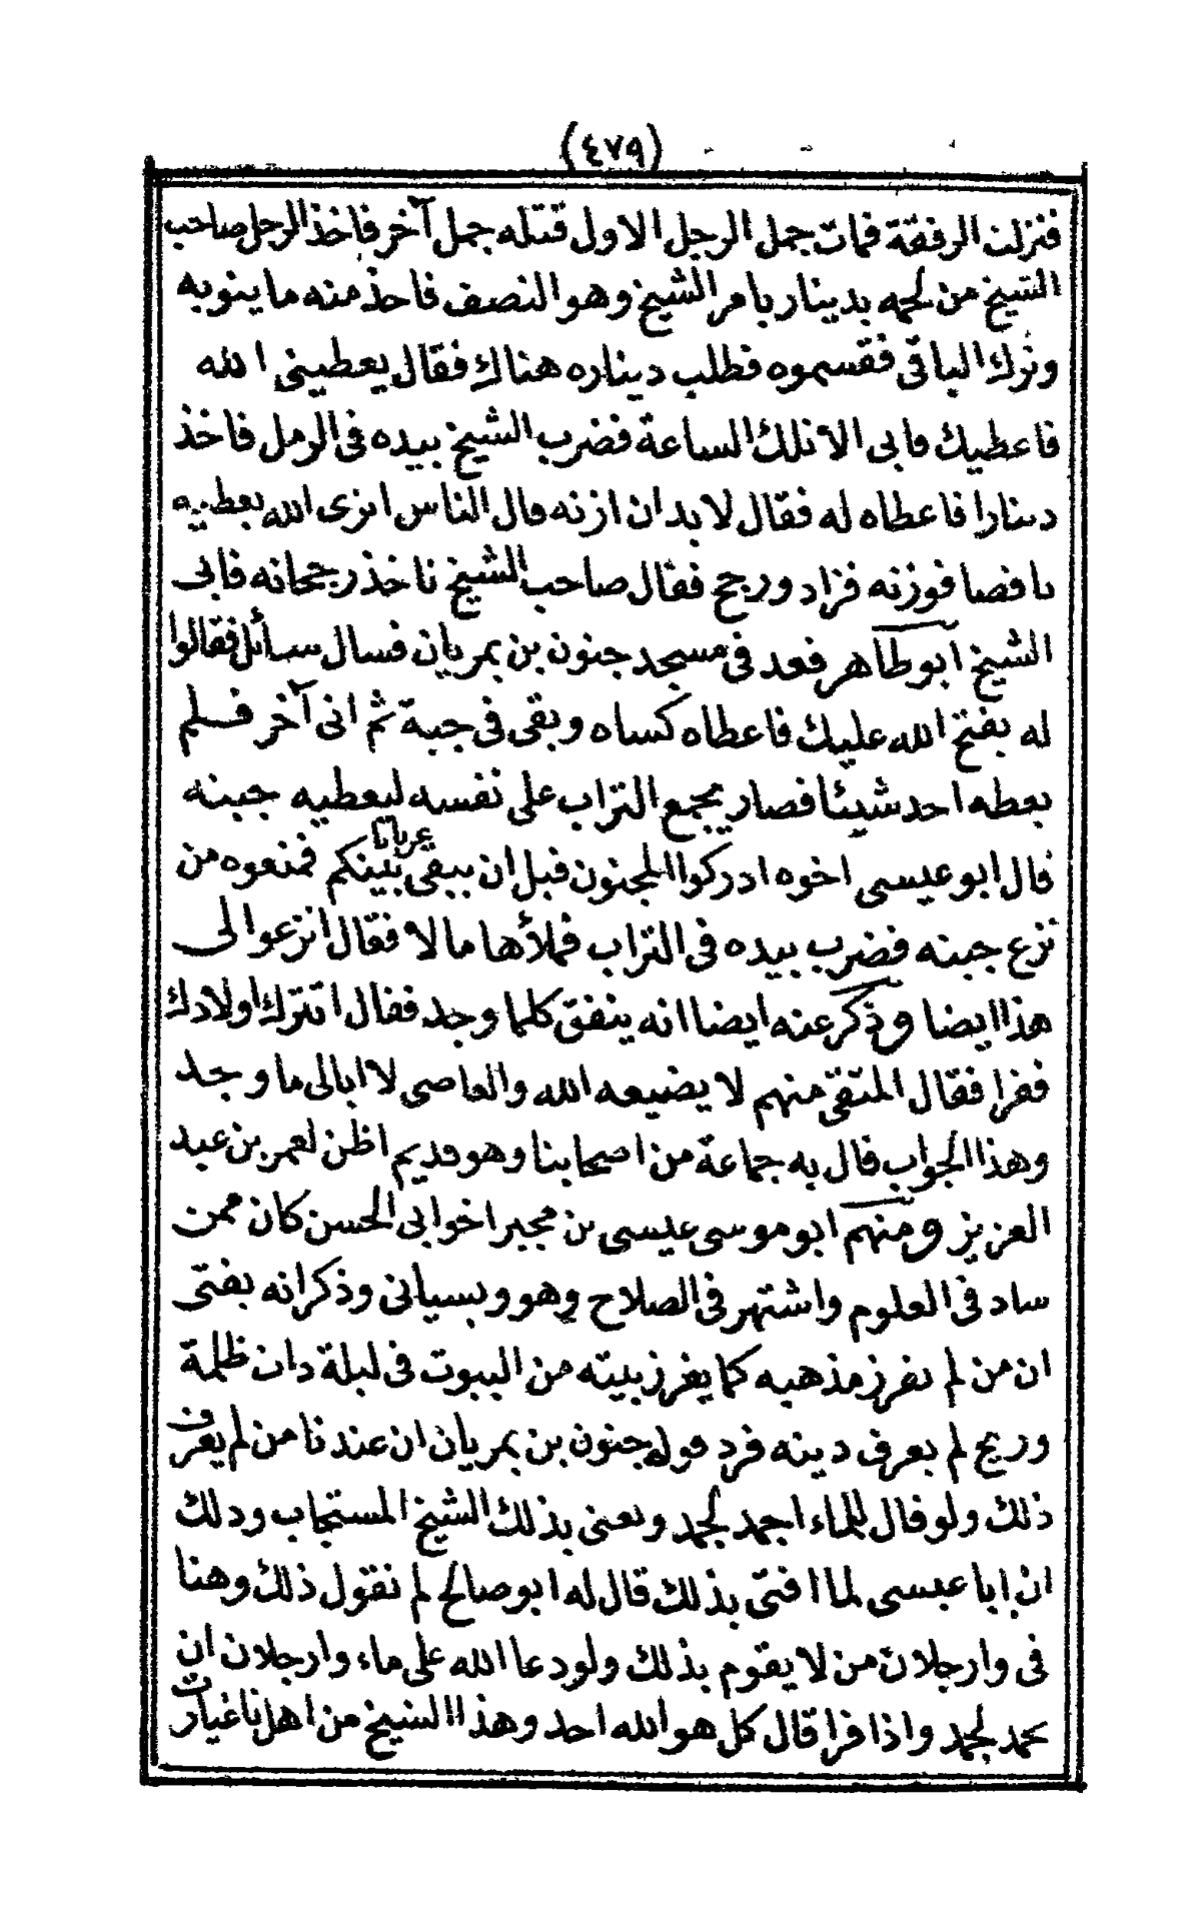 (٤٧٩)
فنزلت الرفقة فمات جمل الرجل الاول قتله جمل آخر فاخذ الرجل صاحب
الشيخ من لحمه بدينار بامر الشيخ وهو النصف فاخذ منه ما ينوبه
وترك الباقى فقسموه فطلب ديناره هناك فقال يعطينى الله
فاعطيك فابى الا تلك الساعة فضرب الشيخ بيده فى الرمل فاخذ
دينارا فاعطاه له فقال لا بد ان ازنه فقال الناس اترى الله يعطيه
ناقصا فوزنه فزاد ورجح فقال صاحب الشيخ ناخذ رجحانه فابى
الشيخ ابو طاهر فعد فى مسجد جنون بن يمريان فسال سائل فقالوا
له يفتح الله عليك فاعطاه كساه وبقى فى جبة ثم اتى آخر فلم
يعطه احد شيئا فصار يجمع التراب على نفسه ليعطيه جبته
قال ابو عيسى اخوه ادركوا المجنون قبل ان يبقى بينكم عريانا فمنعوه من
نزع جبته فضرب بيده فى التراب فملأها مالا فقال انزعوا لى
هذا ايضا وذكر عنه ايضا انه ينفق كلما وجد فقال اتترك اولادك
فقرا فقال المتقى منهم لا يضيعه الله والعاصى لا ابالى ما وجد
وهذا الجواب قال به جماعة من اصحابنا وهو قديم اظن لعمر بن عبد
العزيز ومنهم ابو موسى عيسى بن مجبر اخو ابى الحسن كان ممن
ساد فى العلوم واشتهر فى الصلاح وهو ويسيانى وذكر انه يفتى
ان من لم يفرز مذهبه كما يفرز بيته من البيوت فى ليلة ذات ظلمة
وريح لم يعرف دينه فرد قوله جنون بن يمريان ان عندنا من لم يعرف
ذلك ولو قال للماء اجمد لجمد ويعنى بذلك الشيخ المستجاب وذلك
ان ابا عيسى لما افتى بذلك قال له ابو صالح لم تقول ذلك وهنا
فى وارجلان من لا يقوم بذلك ولو دعا الله على ماء وارجلان ان
يجمد لجمد واذا قرا قال كل هو الله احد وهذا الشيخ من اهل تاغيارت